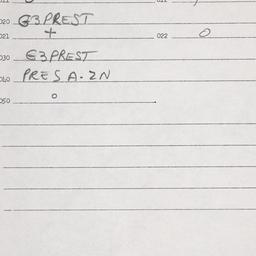 020 E3PREST
021 + 022 0
030 E3PREST
060 PRES A.2N
050 0